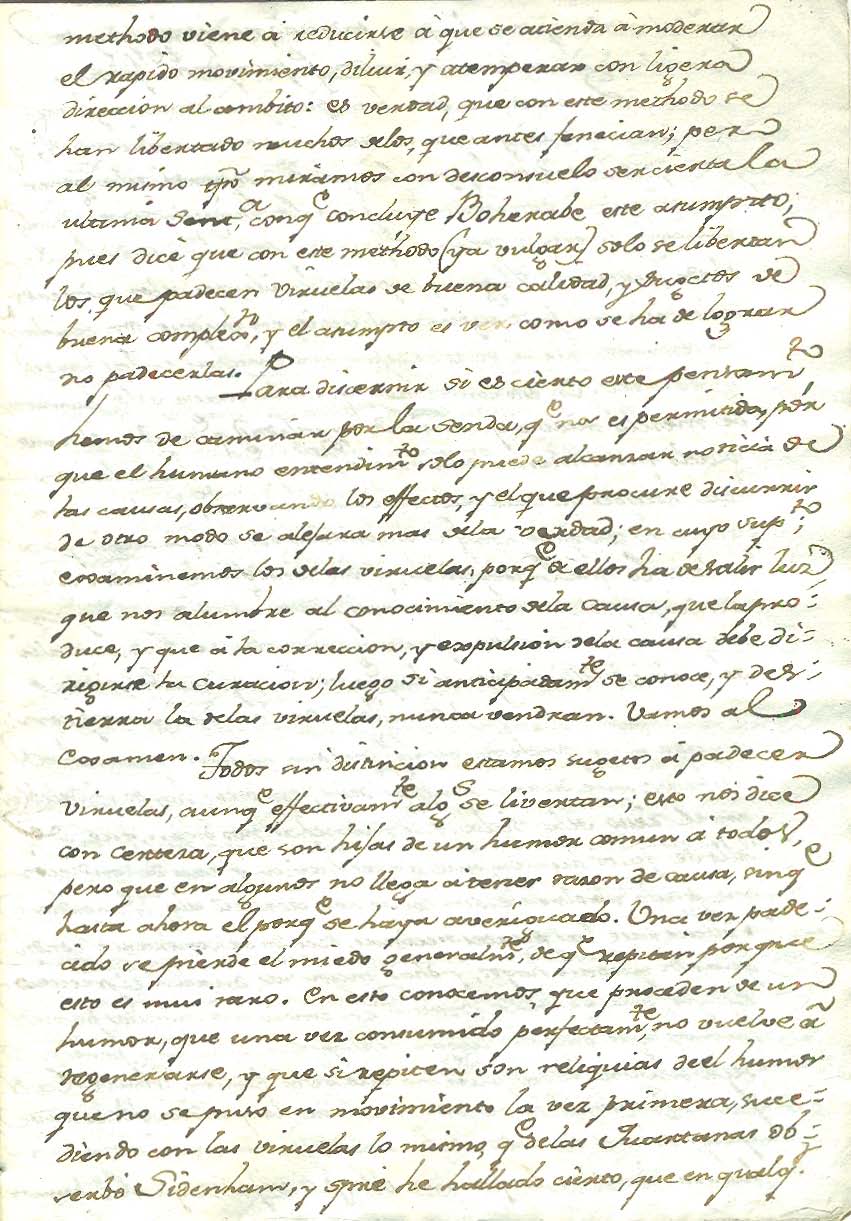 methodo viene á reducirse á que se atienda á moderar
el rapido movimiento, diluir, y atemperar con ligera
direccion al ambito: es verdad, que con este methodo se
han libertado muchos delos, que antes fenecian; pero
al mismo tpõ miramos con desconsuelo ser cierta la
ultima Sentª, conq.e concluye Boherabe este asumpto;
pues dice que con este methodo (ya vulgar) solo se libertan
los que padecen Viruelas de buena calidad, y sugectos de
buena complex.n, y el asumpto es ver como se ha de lograr
no padecerlas. Para discernir si es cierto este pensam.to
hemos de caminar por la senda, q.e nos es permitida, por
que el humano entendim.to solo puede alcanzar noticia de
las causas, observando los effectos, y el que procure discurrir
de otro modo se alejara mas dela verdad; en cuyo sup.to,
examinemos los delas viruelas, porq.e de ellos ha de salir luz,
que nos alumbre al conocimiento dela causa, que la pro-
duce, y que á la correccion, y expulsion dela causa debe di-
rigirse la curacion; luego si anticipadam.te se conoce, y des-
tierra la delas viruelas, nunca vendran. Vamos al
Examen. Todos sin distincion estamos sugetos á padecer
viruelas, aunq.e effectivam.te alg.s se livertan; esto nos dice
con certeza, que son hijas de un humor comun á todos,
pero que en algunos no llega á tener razon de causa, sinq.e
hasta ahora el porq.e se haya averiguado. Una vez pade-
cido se pierde el miedo generalm.te, de q.e repitan porque
esto es mui raro. En esto conocemos, que proceden de un
humor, que una vez consumido perfectam.te, no vuelve á
regenerarse, y que si repiten son reliquias deel humor
que no se puso en movimiento la vez primera, suce-
diendo con las viruelas lo mismo, q.e delas Quartanas ob-
serbó Sidenham, y spre he hallado cierto, que en qualq.r